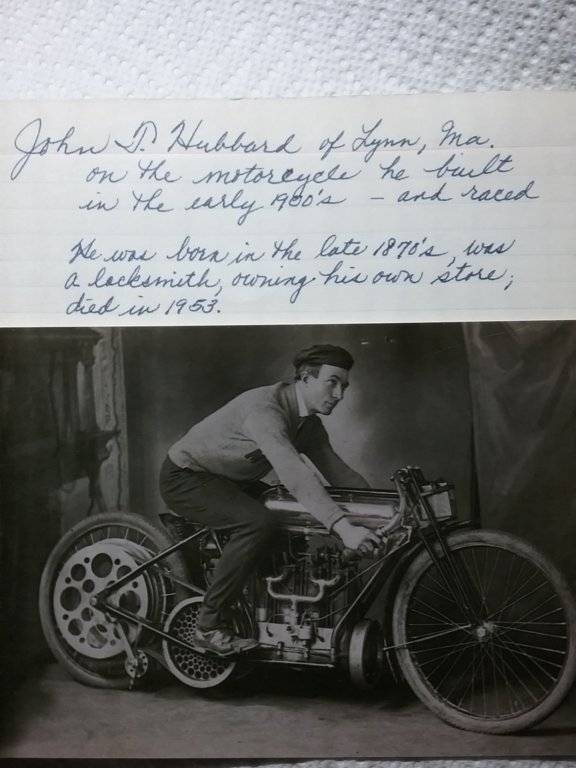 John T. Hubbard of Lynn, Ma.
on the motorcycle he built
in the early 1900's - and raced
He was born in the late 1870's, was
a locksmith, owning his own store;
died in 1953.